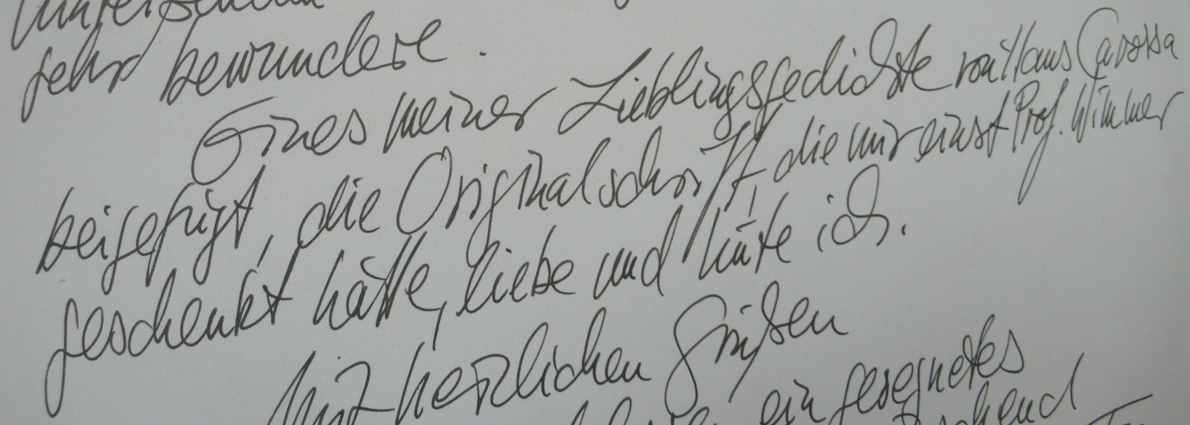 sehr bewundere.
Eines meiner Lieblingsgedichte von Hans Carossa
beigefügt, die Originalschrift, die mir einst Prof. Wimmer
geschenkt hätte, liebe und hüte ich.
Mit herzlichen Grüßen
ein gesegnetes